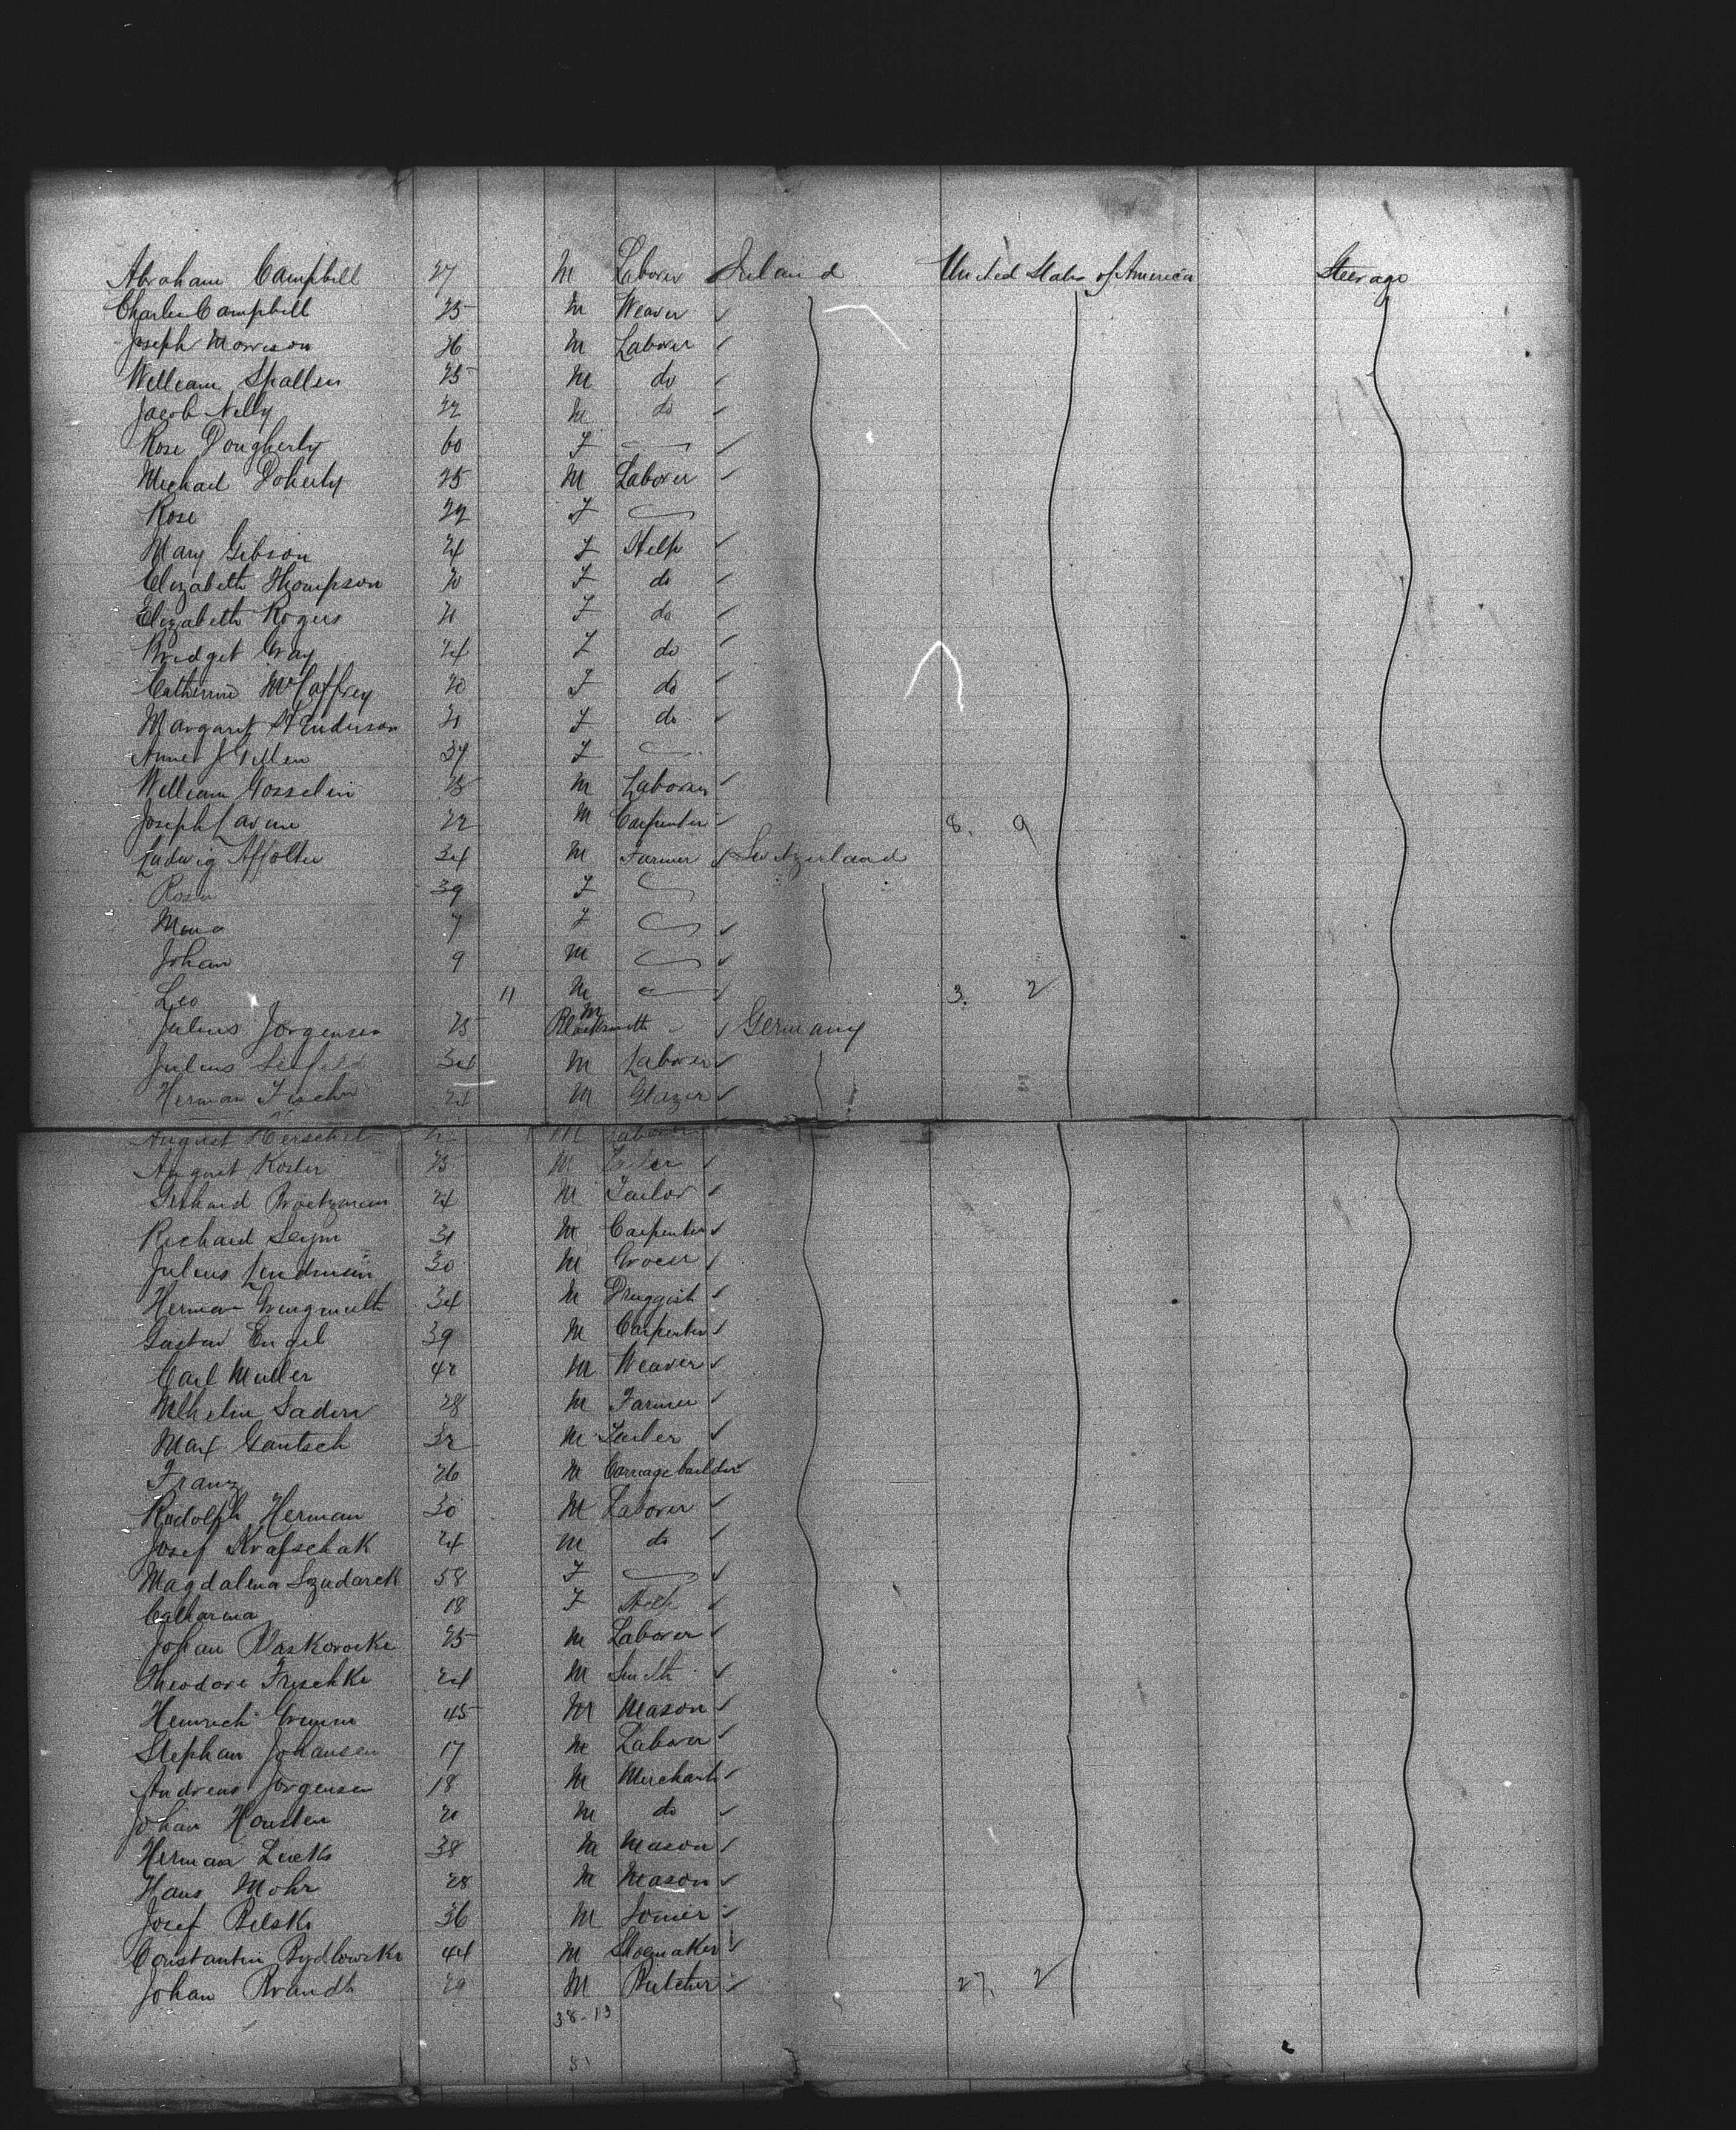 Abraham Campbell 27 M Laborer Ireland United States of America Steerage
Charles Campbell 25 M Weaver
Joseph Morrison 26 M Laborer
William Spallen 25 M do
Jacob Nelly 22 M do
Rose Dougherty 60 F
Michael Doherty 25 M Laborer
Rose 22 F
Mary Gibson 24 F Help
Elizabeth Thompson 20 F do
Elizabeth Rogers 21 F do
Bridget Gray 24 F do
Catherine McCaffrey 20 F do
Margaret Henderson 21 F do
Anne J Gillen 34 F
William Gosselin 25 M Laborer
Joseph Lavine 22 M Carpenter 8. 9
Ludwig Affolter 34 M Farmer Switzerland
Rosa 39 F
7 F
Johan 9 M
Leo 11 M 3. 2
Julius Jorgensen 25 M Blacksmith Germany
Julius Seifeld 34 M Laborer
Herman Fischer 24 M Glazer
August Herschel M Laborer
August Koster 25 M
Gerhard 24 M Tailor
Richard Seym 31 M Carpenter
Julius Lindmein 30 M Grocer
Herman 34 M Druggist
Gustav Engel 39 M Carpenter
Carl Muller 42 M Weaver
Wilhelm Sadern 28 M Farmer
Max Gantsch 32 M
Franz 26 M Carriage builder
Rudolph Herman 30 M Laborer
Josef Krafschak 24 M do
Magdalena Szudarek 58 F
Catharina 18 F Help
Johan 25 M Laborer
Theodore Frischke 24 M Smith
Heinrich Grimm 45 M Mason
Stephan Johansen 17 M Laborer
Andreas Jorgensen 18 M Merchant
Johan Housten 21 M do
Herman Lucks 38 M Mason
Hans Mohr 28 M Mason
Josef Bilski 36 M Joiner
Constantin Rydlowski 44 M Shoemaker
Johan Brandt 29 M Butcher 27. 2
38-13
51